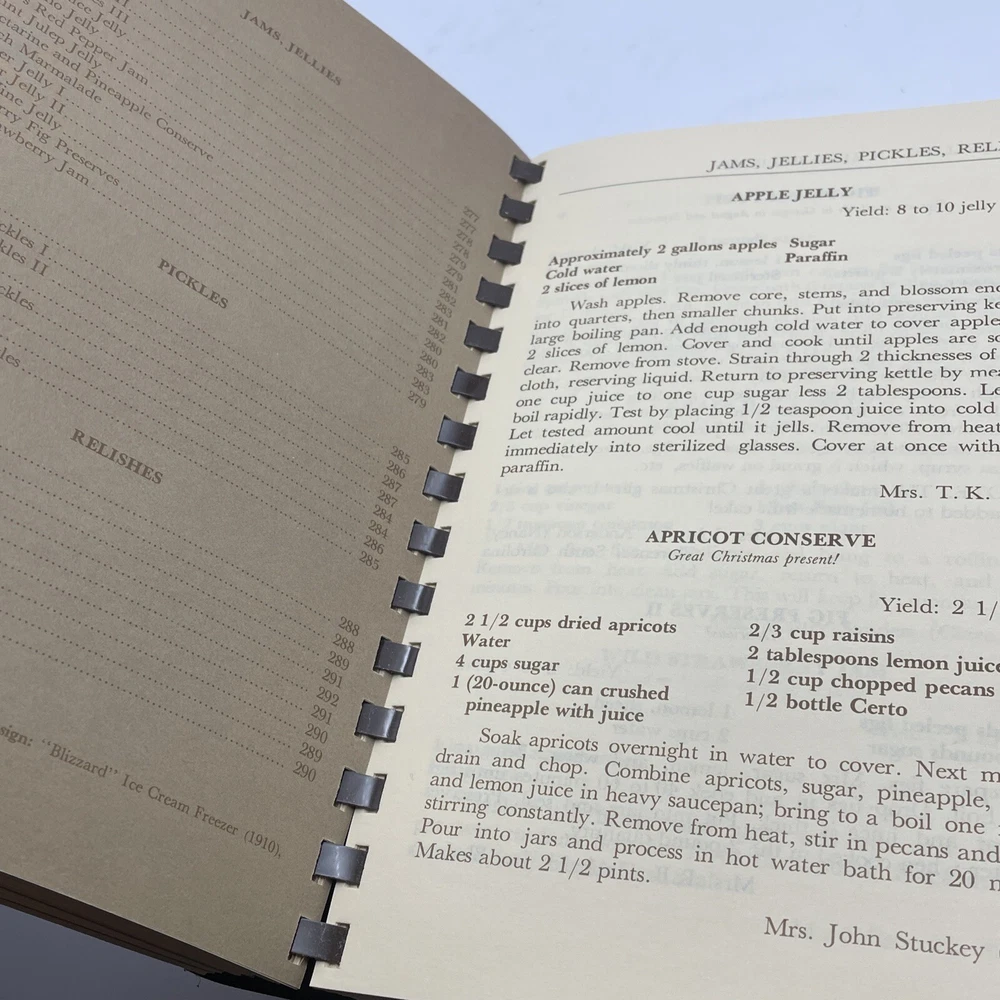 JAMS, JELLIES
III
Jelly
Red Pepper Jam
Julep Jelly
and Pineapple Conserve
Marmalade
Jelly I
Jelly II
Jelly
Fig Preserves
Jam
277
277
278
279
279
281
282
283
281
282
280
280
283
283
279
PICKLES
I
II
285
286
287
287
284
284
286
285
RELISHES
288
288
289
291
292
291
290
289
290
"Blizzard" Ice Cream Freezer (1910),
JAMS, JELLIES, PICKLES,
APPLE JELLY
Yield: 8 to 10 jelly
Approximately 2 gallons apples Sugar
Cold water Paraffin
2 slices of lemon
Wash apples. Remove core, stems, and blossom
into quarters, then smaller chunks. Put into preserving
large boiling pan. Add enough cold water to cover
2 slices of lemon. Cover and cook until apples are
clear. Remove from stove. Strain through 2 thicknesses of
cloth, reserving liquid. Return to preserving kettle by
one cup juice to one cup sugar less 2 tablespoons.
boil rapidly. Test by placing 1/2 teaspoon juice into cold
Let tested amount cool until it jells. Remove from heat
immediately into sterilized glasses. Cover at once with
paraffin.
Mrs. T. K.
APRICOT CONSERVE
Great Christmas present!
Yield: 2 1/
2 1/2 cups dried apricots 2/3 cup raisins
Water 2 tablespoons lemon juice
4 cups sugar 1/2 cup chopped pecans
1 (20-ounce) can crushed 1/2 bottle Certo
pineapple with juice
Soak apricots overnight in water to cover. Next
drain and chop. Combine apricots, sugar, pineapple,
and lemon juice in heavy saucepan; bring to a boil one
stirring constantly. Remove from heat, stir in pecans and
Pour into jars and process in hot water bath for 20
Makes about 2 1/2 pints.
Mrs. John Stuckey